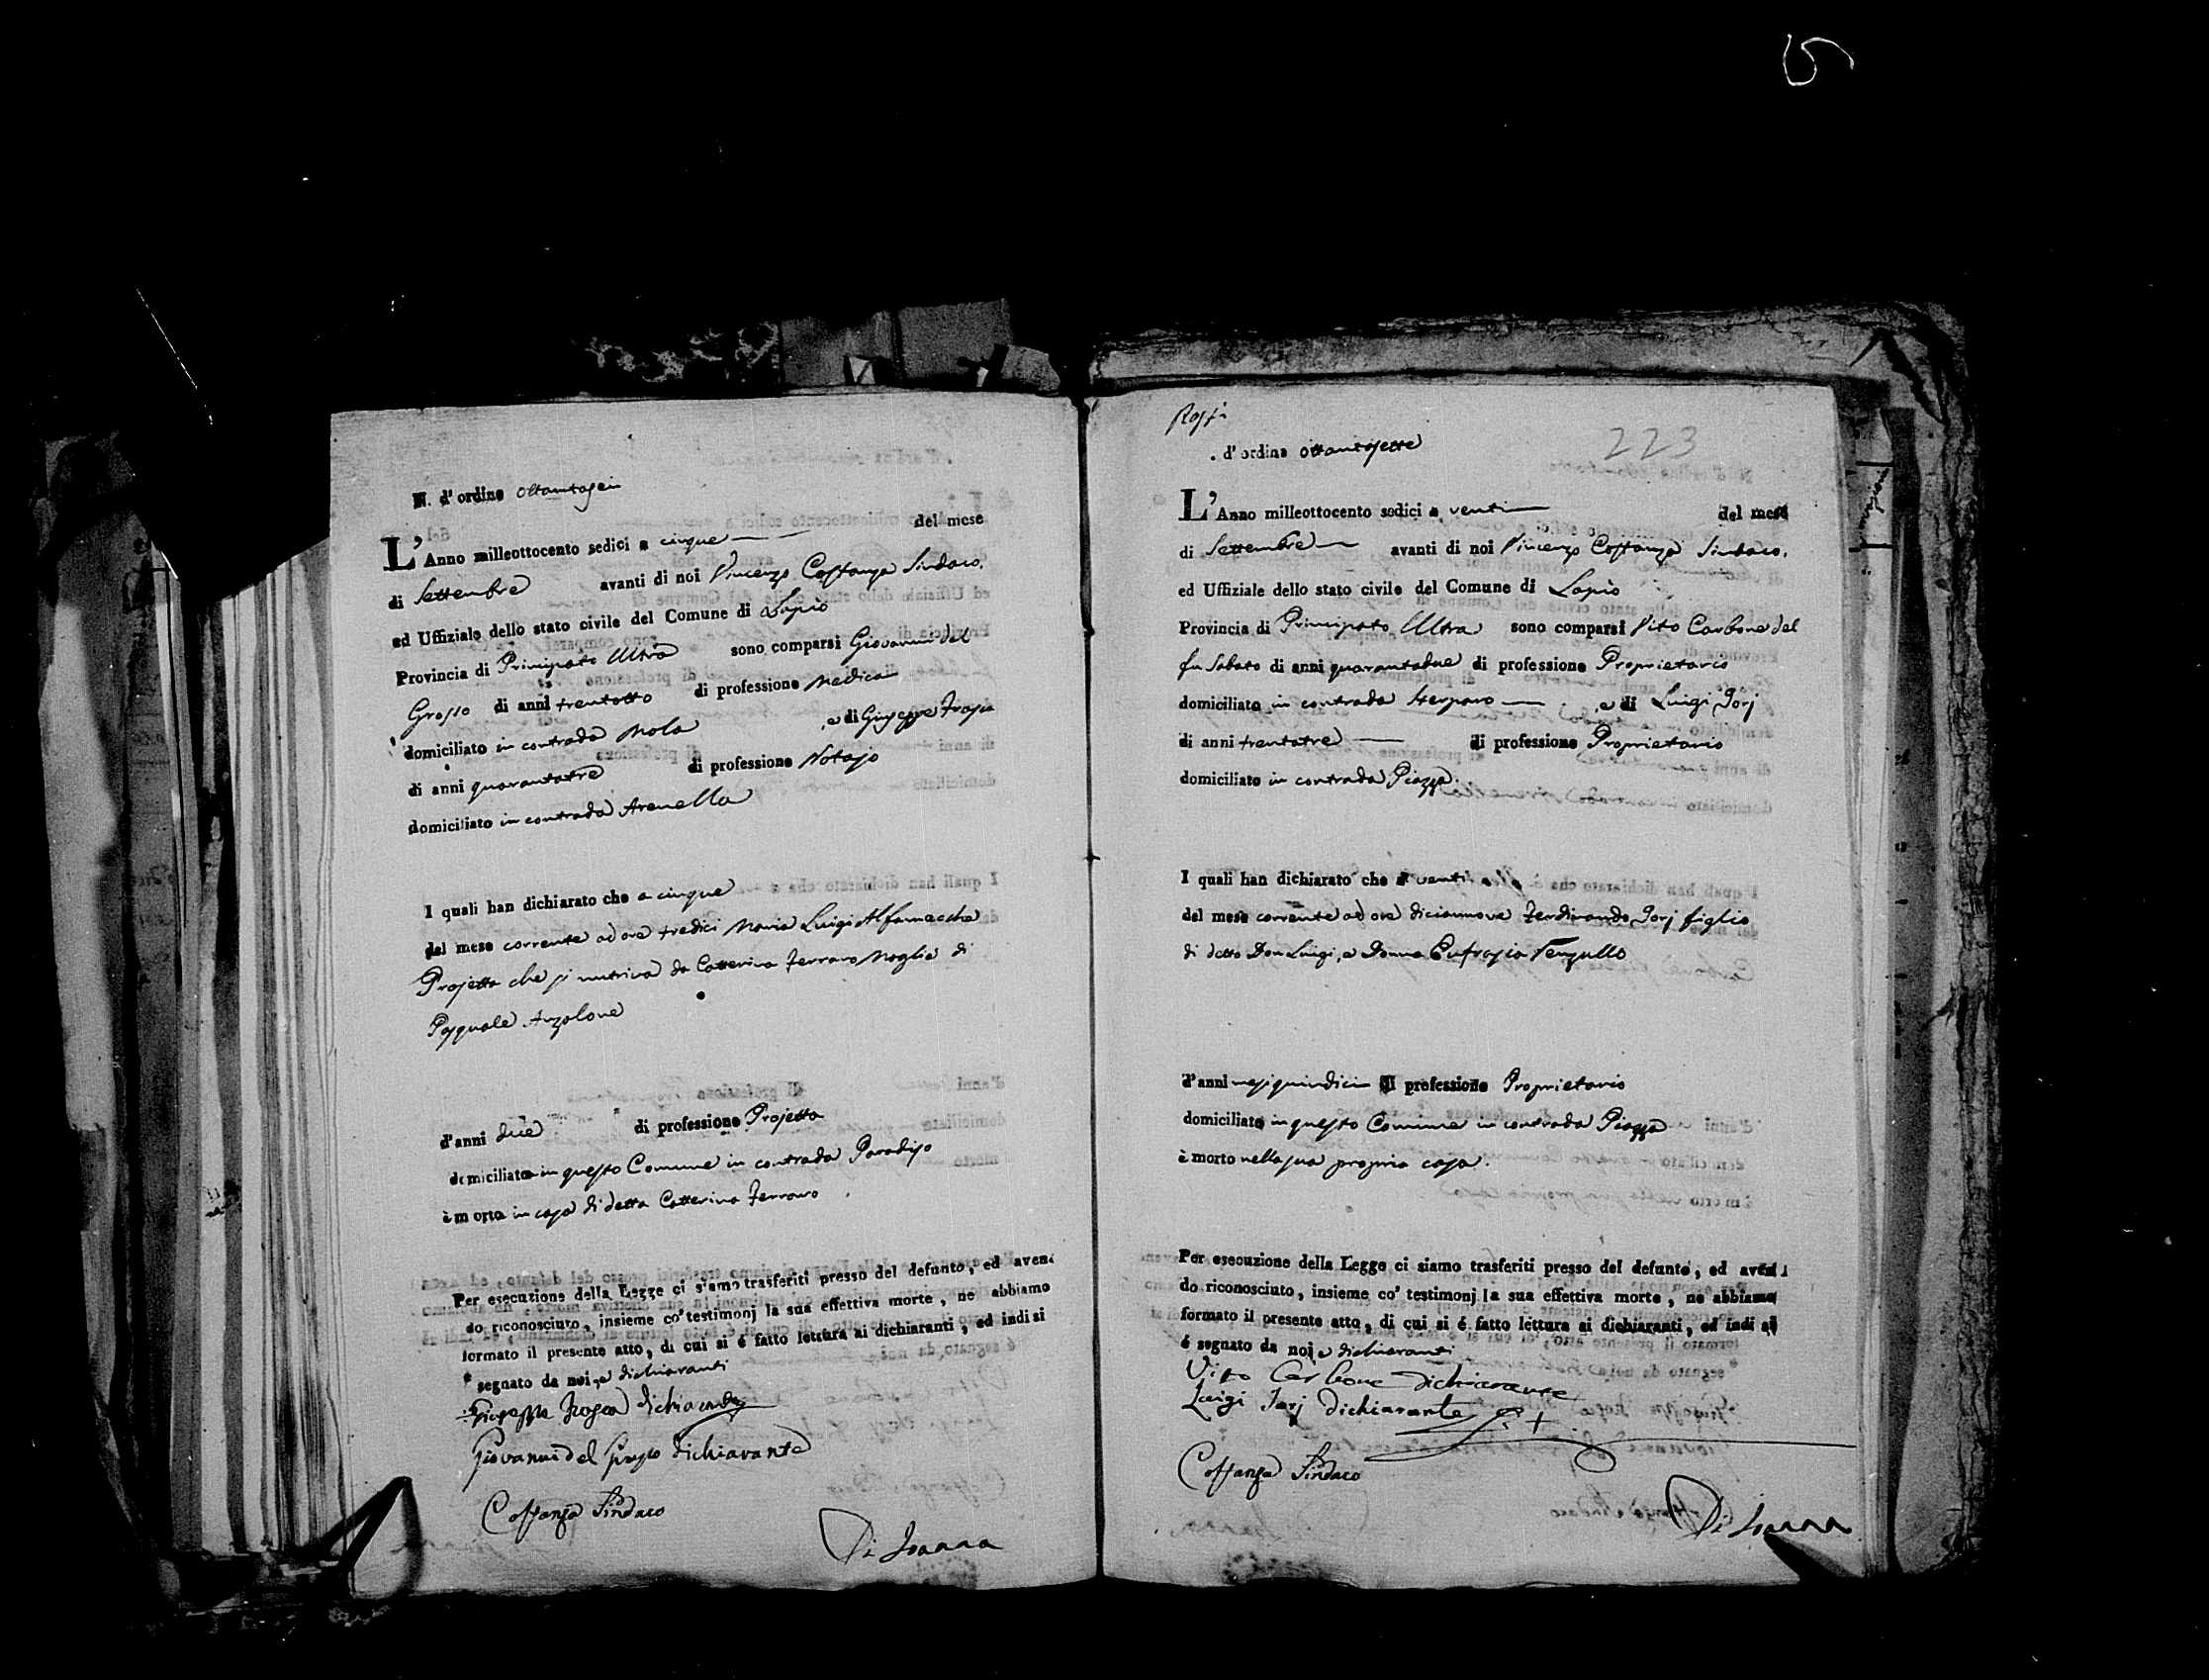 N. d'ordine ottantasei
L'Anno milleottocento sedici a cinque del mese
di Settembre avanti di noi Vincenzo Costanza Sindaco,
ed Uffiziale dello stato civile del Comune di Lapio
Provincia di Principato Ultra sono comparsi Giovanni del
Grosso di anni trentotto di professione Medico
domiciliato in contrada Mola e di Giuseppe Trosca
di anni quarantatre di professione Notajo
domiciliato in contrada Arenella
I quali han dichiarato che a cinque
del mese corrente ad ore tredici Maria Luigi
Projetta che si nutriva da Catterina Ferraro Moglie di
Pasquale Anzalone
d'anni due di professione Projetta
domiciliata in questo Comune in contrada Paradiso
è morta in casa di detta Catterina Ferraro
Per esecuzione della Legge ci siamo trasferiti presso del defunto, ed aven
do riconosciuto, insieme co' testimonj la sua effettiva morte, ne abbiamo
formato il presente atto, di cui si é fatto lettura ai dichiaranti, ed indi si
segnato da noi, e dichiaranti
Giuseppe Trosca dichiarante
Giovanni del Grosso dichiarante
Costanza Sindaco
Di Ioanna
5
223
. d'ordine ottantasette
L'Anno milleottocento sedici a venti del mese
di Settembre avanti di noi Vincenzo Costanza Sindaco,
ed Uffiziale dello stato civile del Comune di Lapio
Provincia di Principato Ultra sono comparsi Vito Carbone del
fu Sabato di anni quarantadue di professione Proprietario
domiciliato in contrada e di Luigi Jorj
di anni trentatre di professione Proprietario
domiciliato in contrada Piazza
I quali han dichiarato che a venti
del mese corrente ad ore diciannove Ferdinando Jorj figlio
di detto Don Luigi, e Donna Eufrasia
d'anni mesi quindici di professione Proprietario
domiciliato in questo Comune in contrada Piazza
è morto nella sua propria casa.
Per esecuzione della Legge ci siamo trasferiti presso del defunto, ed aven
do riconosciuto, insieme co' testimonj la sua effettiva morte, ne abbiamo
formato il presente atto, di cui si é fatto lettura ai dichiaranti, ed indi si
é segnato da noi e dichiaranti
Vito Carbone dichiarante
Luigi Jorj dichiarante
Costanza Sindaco
Di Ioanna